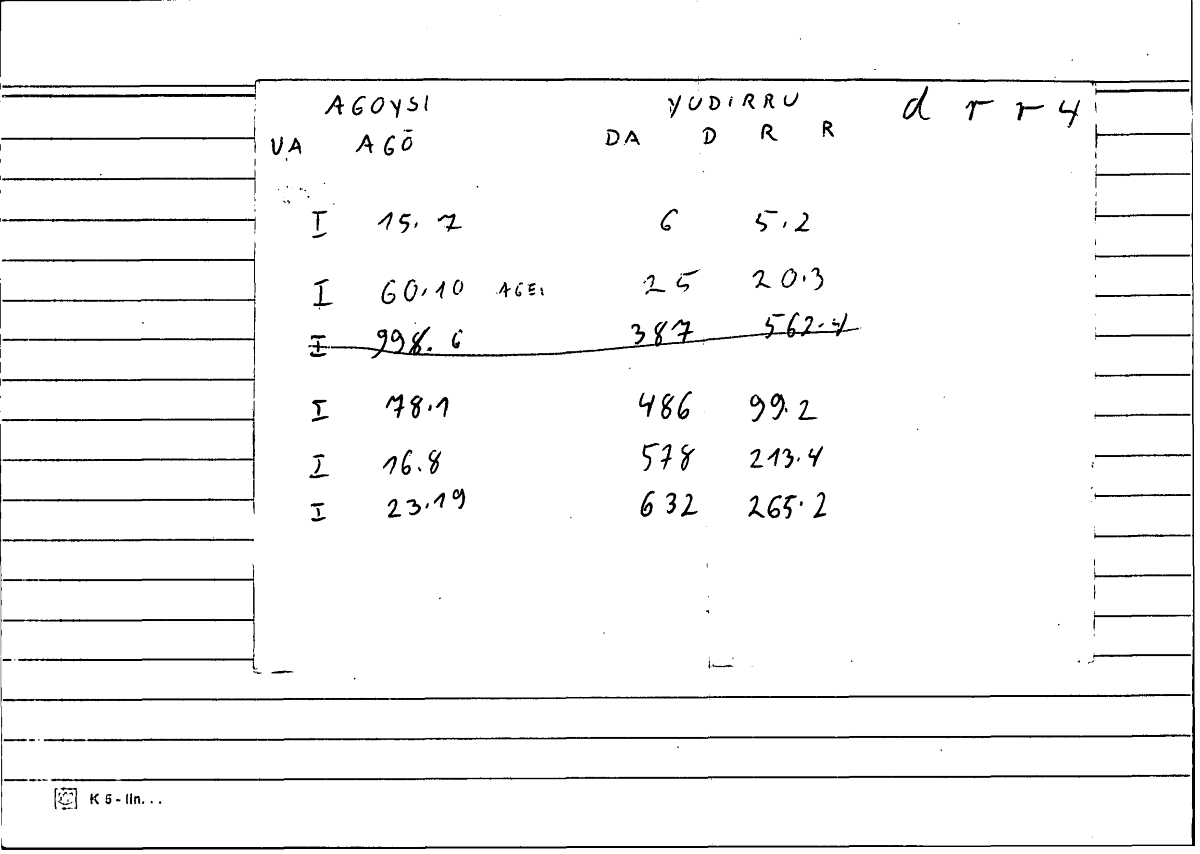 AGOYSI YUDIRRU d r r 4
VA AGŌ DA D R R
I 15. 7 6 5.2
I 60.10 AGEI 25 20.3
I 998. 6 387 562.4
I 78.1 486 99.2
I 16.8 578 213.4
I 23.19 632 265.2
K 5 - lin. . .